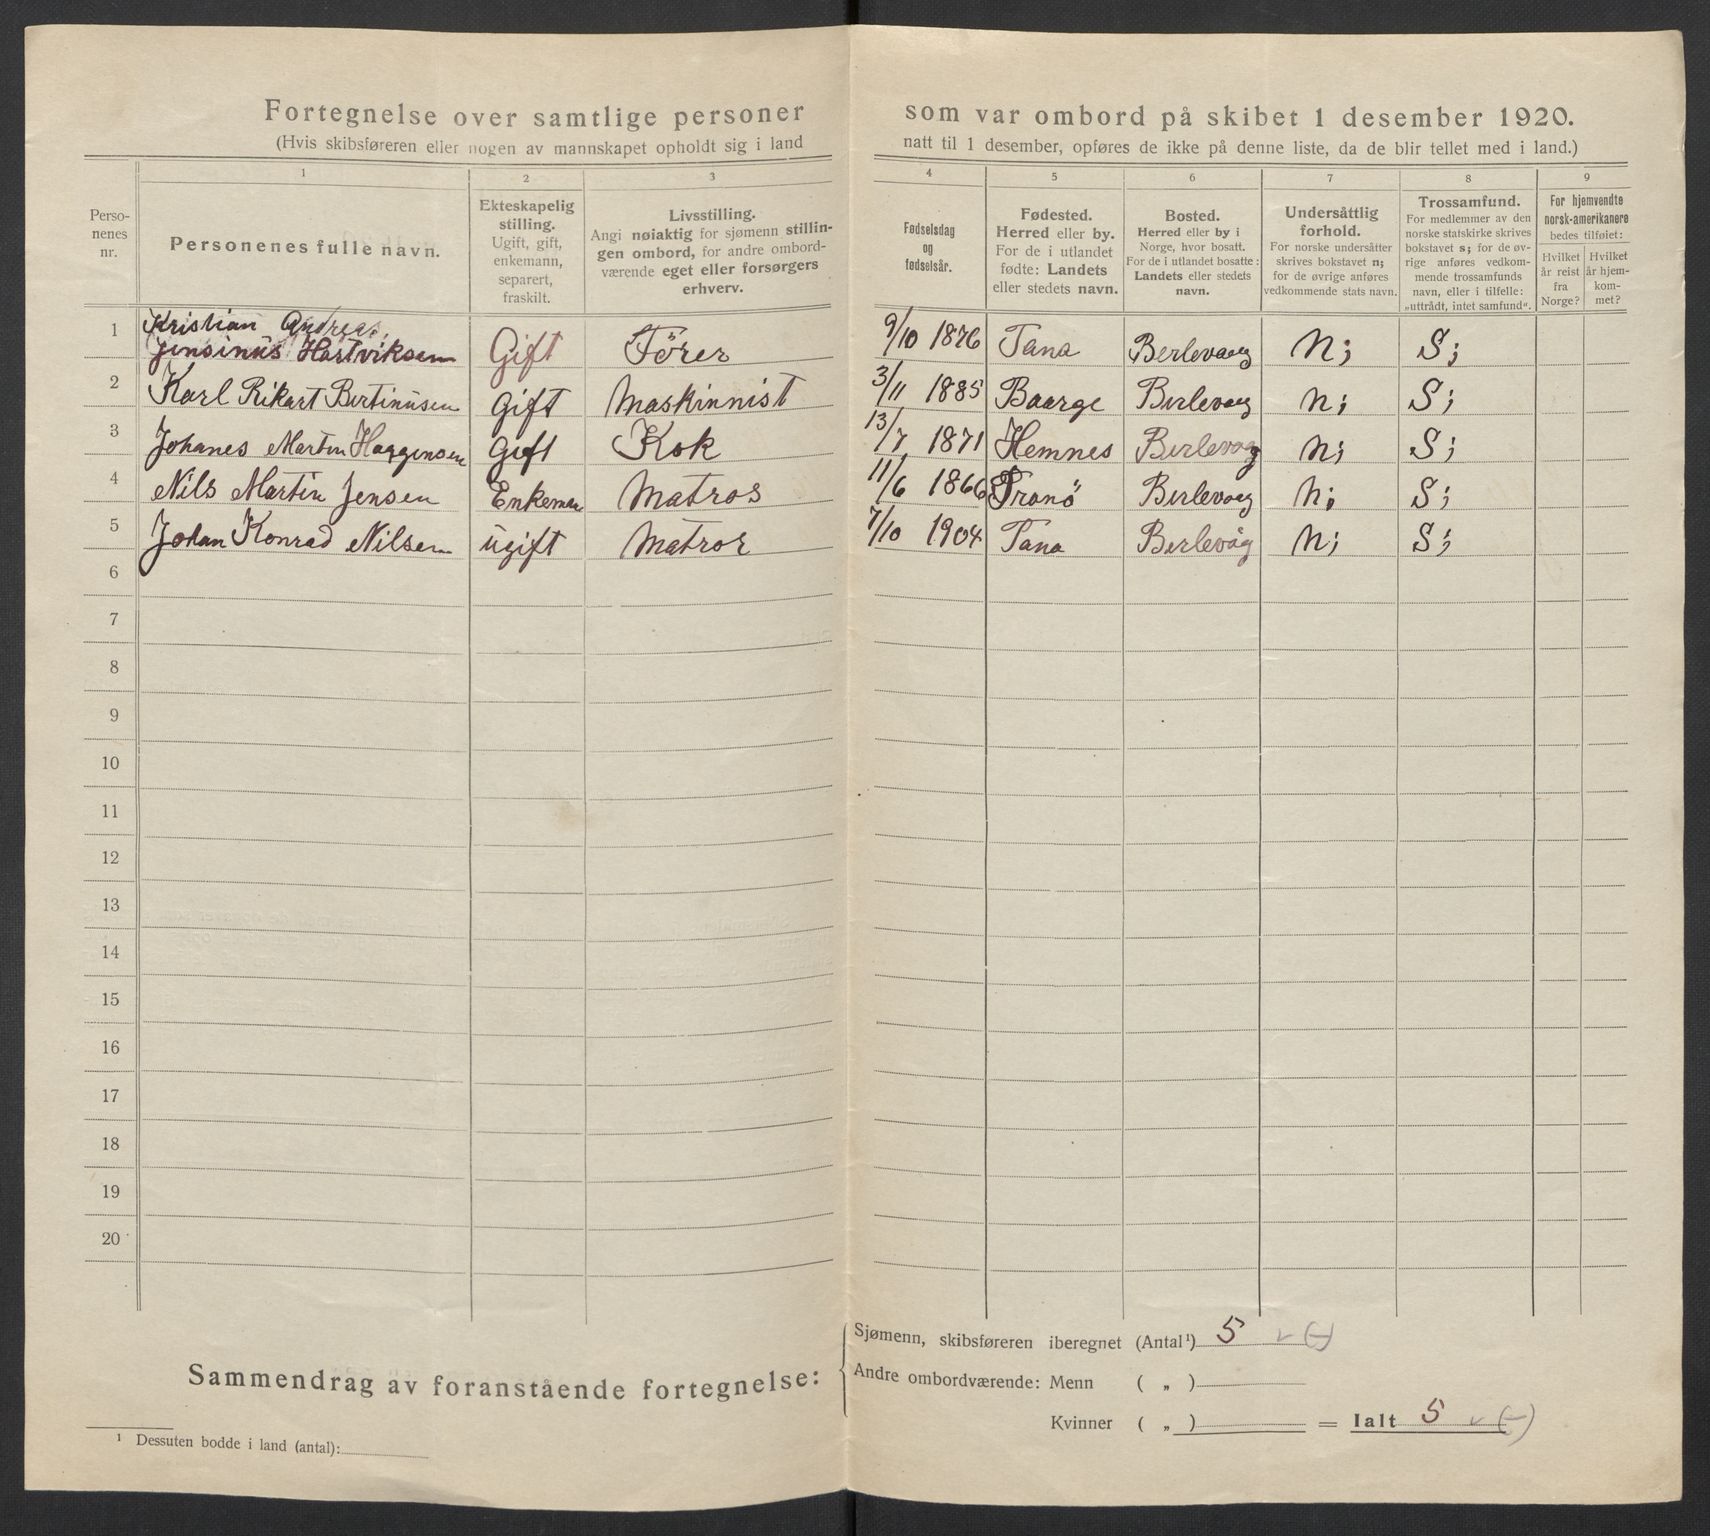 Fortegnelse over samtlige personer som var ombord på skibet 1 desember 1920.
(Hvis skibsføreren eller nogen av mannskapet opholdt sig i land natt til 1 desember, opføres de ikke på denne liste, da de blir tellet med i land.)
1 2 3 4 5 6 7 8 9
Perso-
nenes
nr.
Personenes fulle navn.
Ekteskapelig
stilling.
Ugift, gift,
enkemann,
separert,
fraskilt.
Livsstilling.
Angi nøiaktig for sjømenn stillin-
gen ombord, for andre ombord-
værende eget eller forsørgers
erhverv.
Fødselsdag
og
fødselsår.
Fødested.
Herred eller by.
For de i utlandet
fødte: Landets
eller stedets navn.
Bosted.
Herred eller by i
Norge, hvor bosatt.
For de i utlandet bosatte:
Landets eller stedets
navn.
Undersåttlig
forhold.
For norske undersåtter
skrives bokstavet n;
for de øvrige anføres
vedkommende stats navn.
Trossamfund.
For medlemmer av den
norske statskirke skrives
bokstavet s; for de øv-
rige anføres vedkom-
mende trossamfunds
navn, eller i tilfelle:
„uttrådt, intet samfund“.
For hjemvendte
norsk-amerikanere
bedes tilføiet:
Hvilket
år reist
fra
Norge?
Hvilket
år hjem-
kom-
met?
1 Kristian Andreas
Jensinus Hartviksen Gift Förer 9/10 1876 Tana Berlevaag N; S;
2 Karl Rikart Bertinusen Gift Maskinnist 3/11 1885 Baarge Berlevaag N; S;
3 Johanes Martin Haagensen Gift Kok 13/7 1871 Hemnes Berlevog N; S;
4 Nils Martin Jensen Enkeman Matros 11/6 1866 Tranö Berlevaag N; S;
5 Johan Konrad Nilsen ugift Matros 7/10 1904 Tana Berlevåg N; S;
6
7
8
9
10
11
12
13
14
15
16
17
18
19
20
Sammendrag av foranstående fortegnelse:
Sjømenn, skibsføreren iberegnet (Antal¹) 5 v (-)
Andre ombordværende: Menn ( „ )
Kvinner ( „ ) = Ialt 5 v (-)
¹ Dessuten bodde i land (antal):